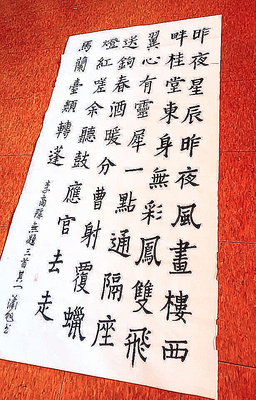 昨夜星辰昨夜風畫樓西
畔桂堂東身無彩鳳雙飛
翼心有靈犀一點通隔座
送鉤春酒暖分曹射覆蠟
燈紅嗟余聽鼓應官去走
馬蘭臺類轉蓬
李商隱無題三首其一